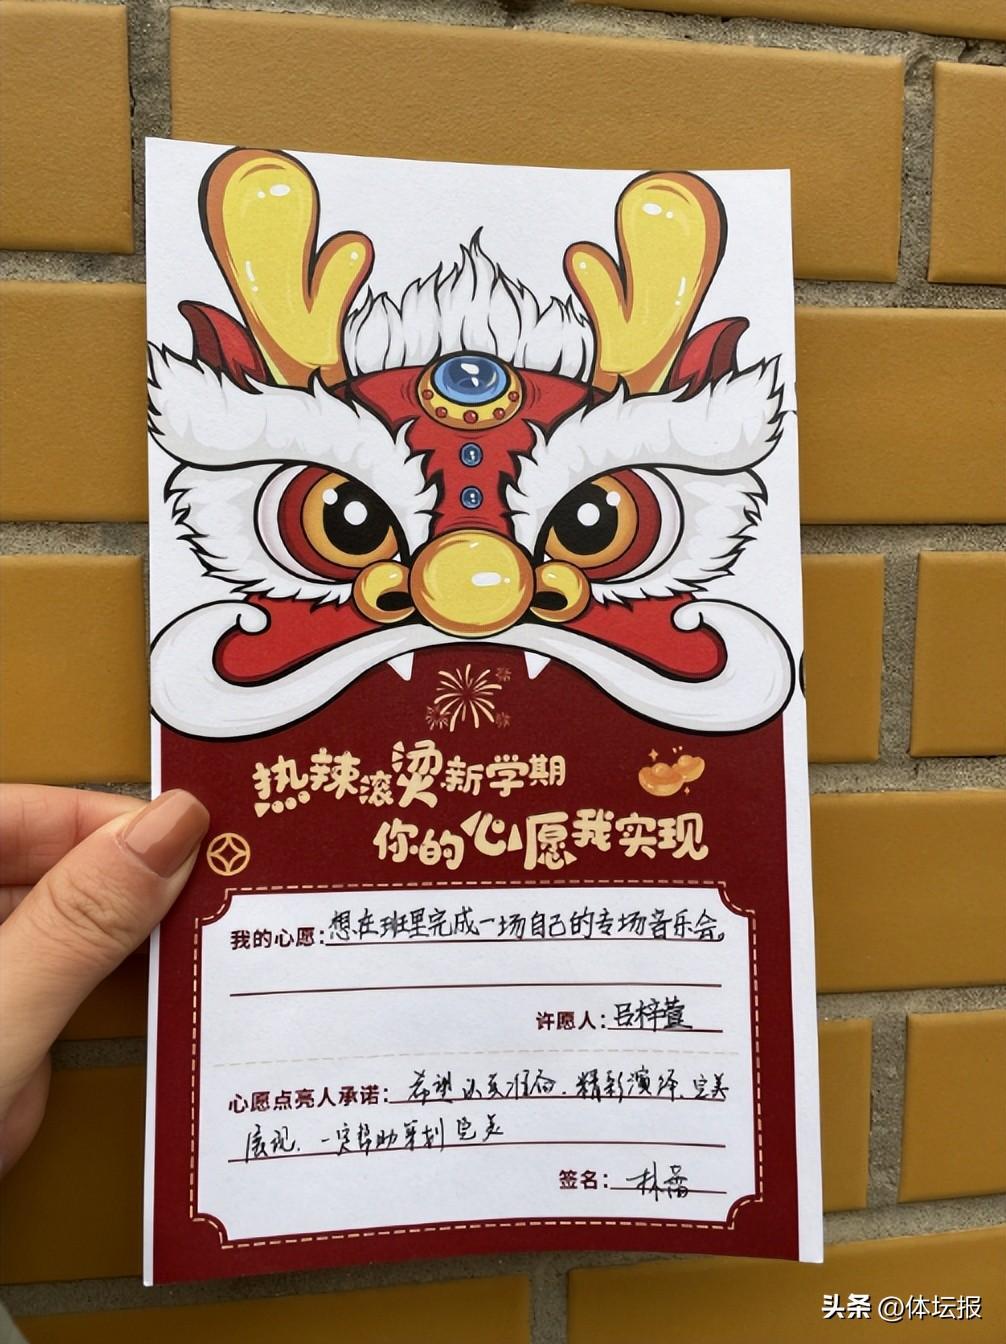 热辣滚烫新学期
你的心愿我实现
我的心愿:想在班里完成一场自己的专场音乐会。
许愿人:吕梓萱
心愿点亮人承诺:希望认真准备、精彩演绎、完美
展现,一定帮助策划完美
签名:林蕾
头条 @体坛报